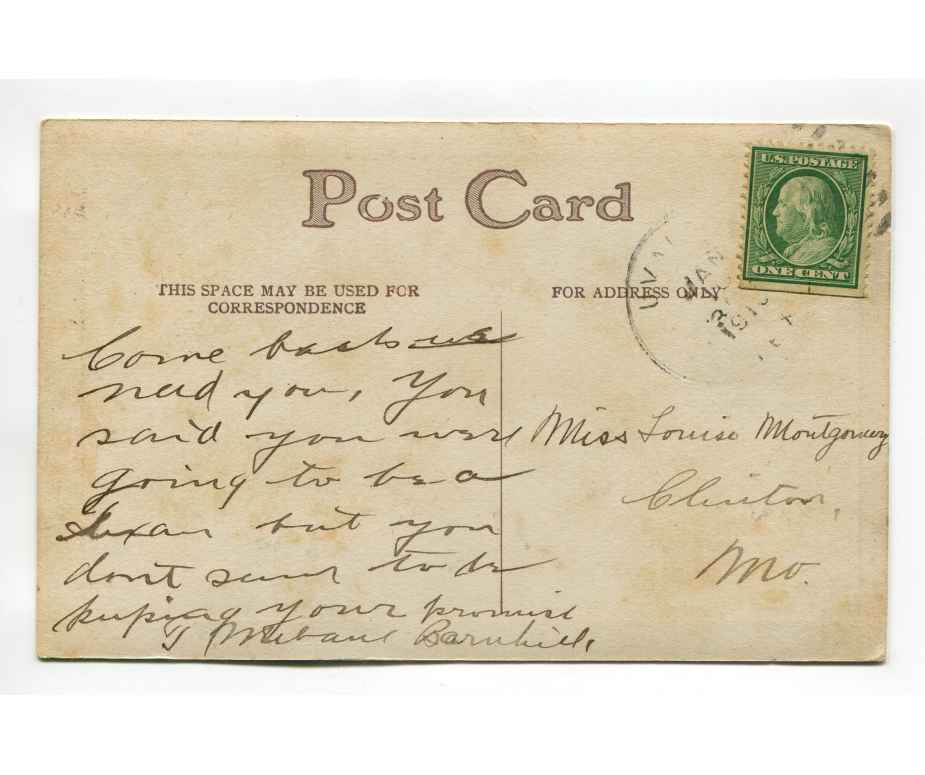 Post Card
U.S. POSTAGE
ONE CENT
UVAL
JAN
THIS SPACE MAY BE USED FOR
CORRESPONDENCE
FOR ADDRESS ONLY
Come back us
need you, You
said you were
going to be a
Texan but you
dont seem to be
keeping your promise
T Mebane Barnhill,
Miss Louise Montgomery
Clinton,
Mo.